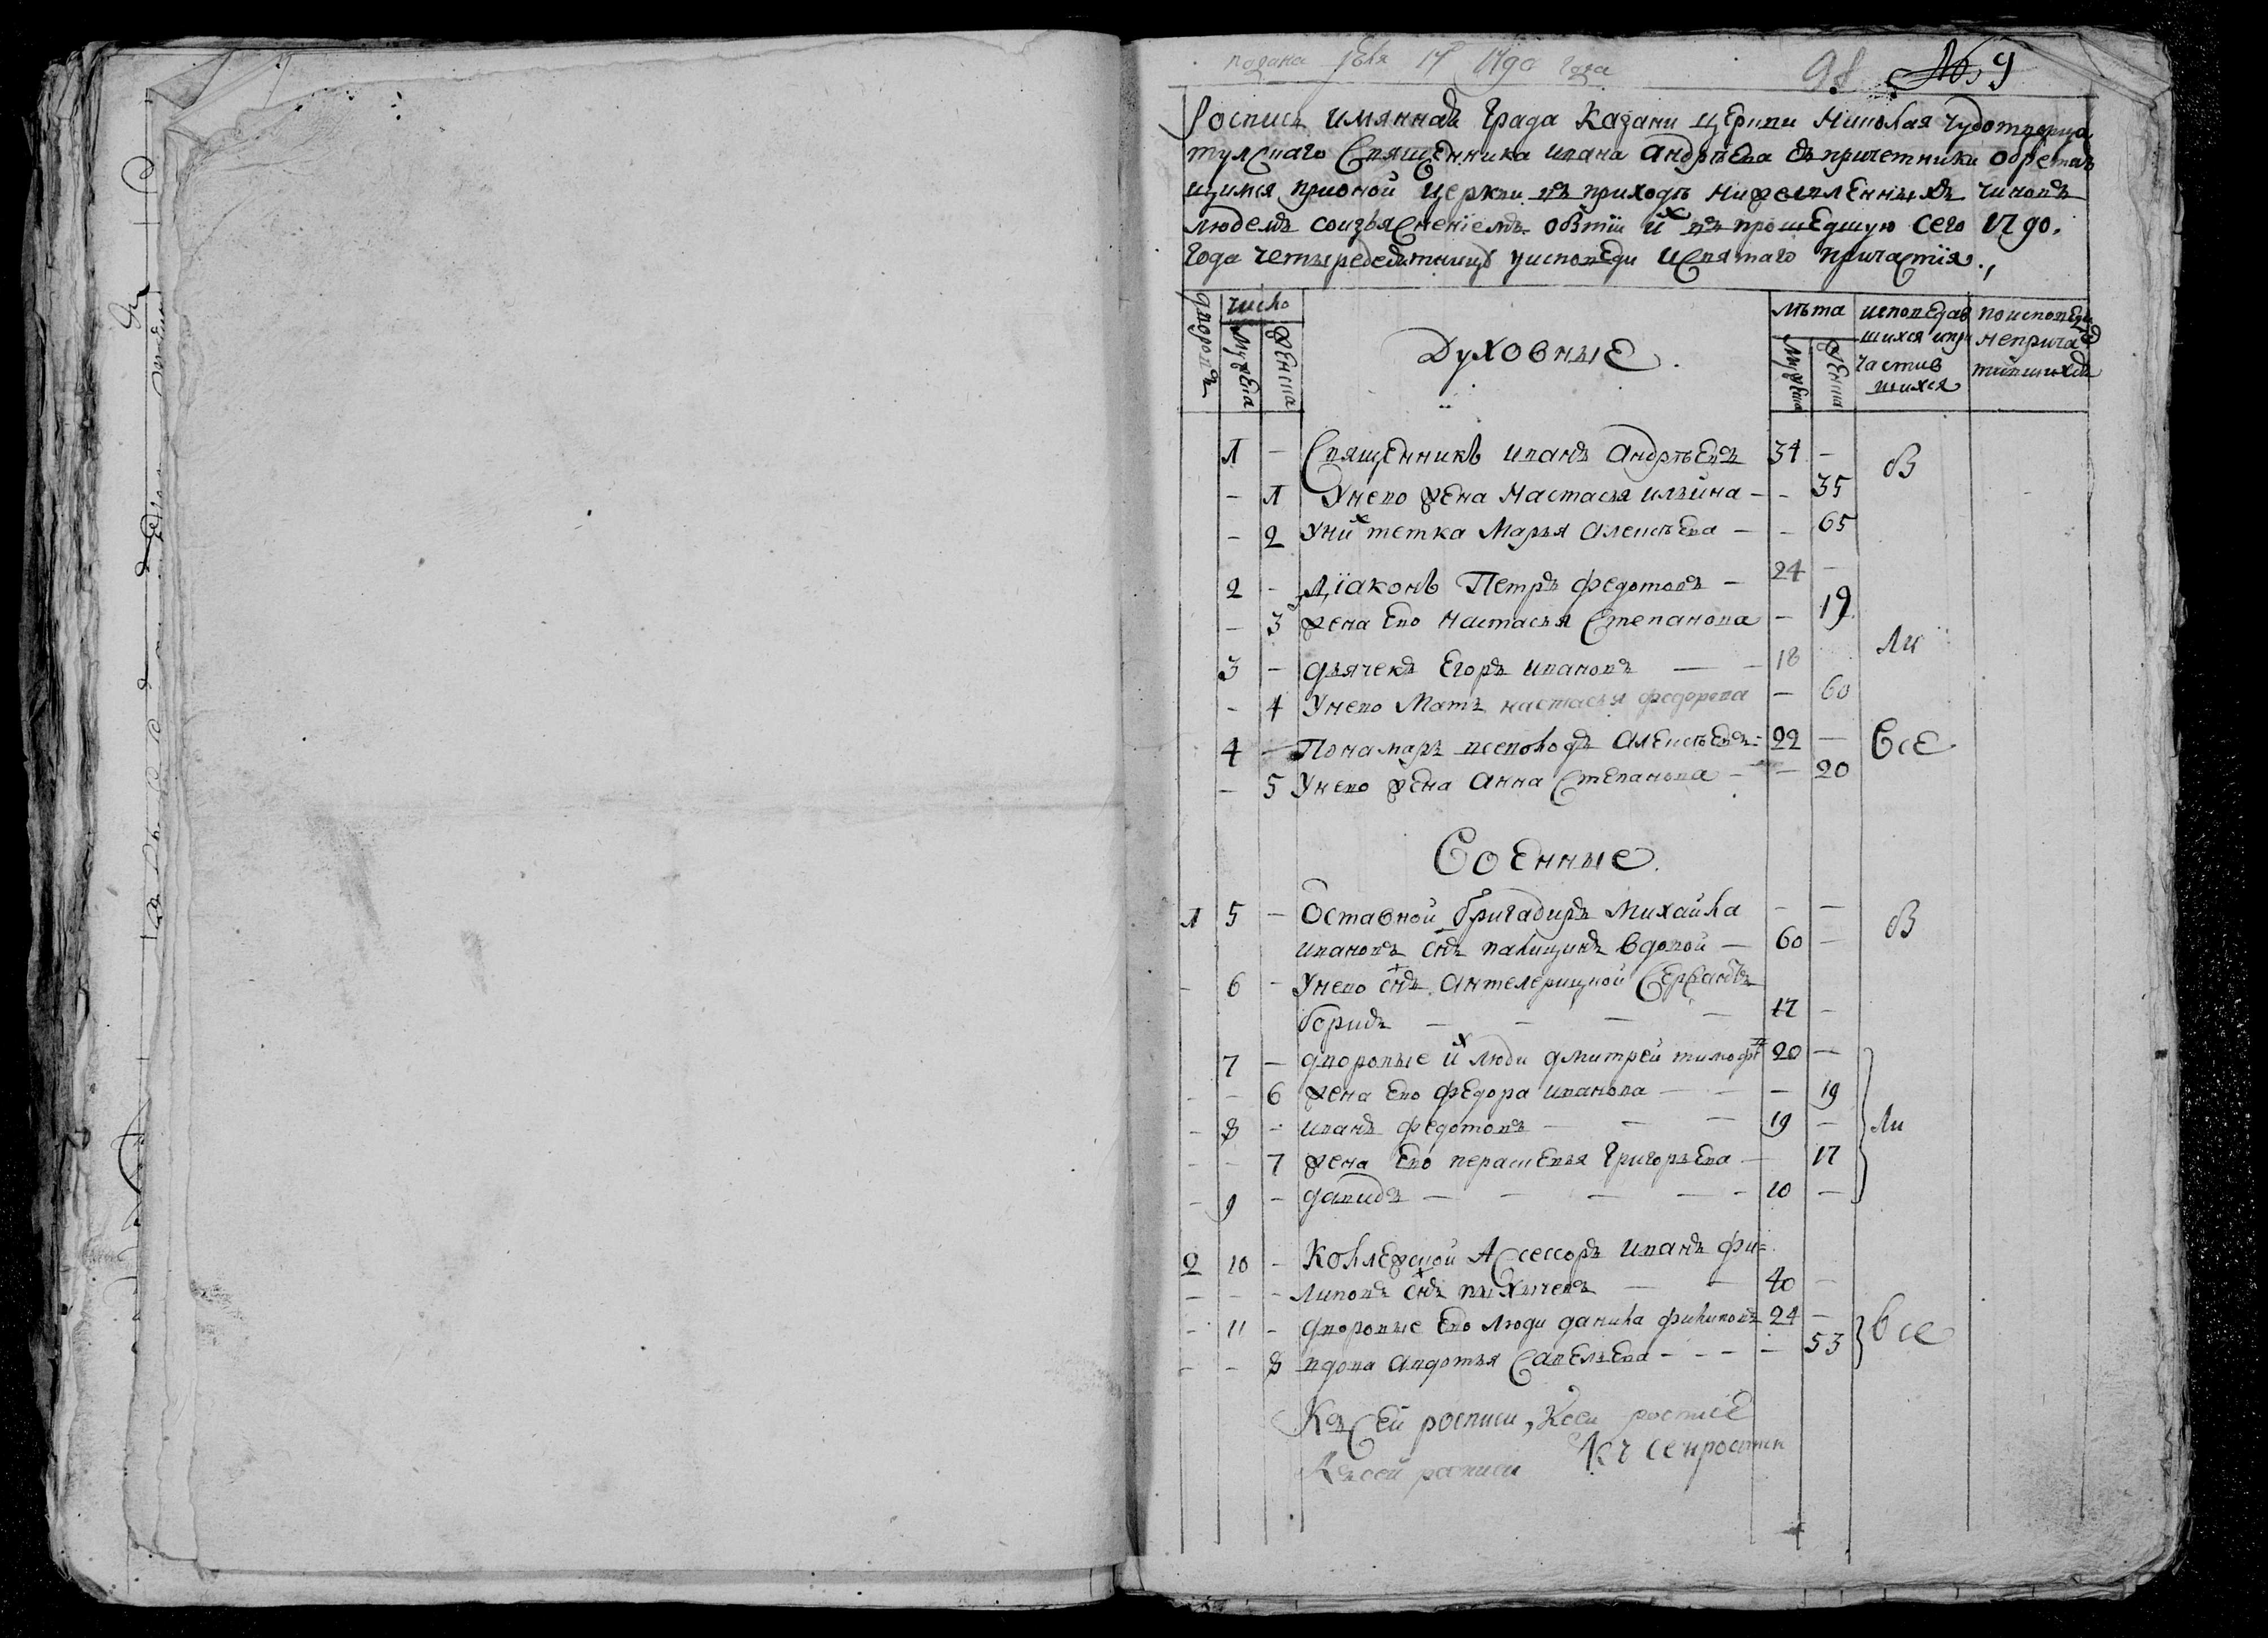 подана 17 1790 года
98 № 9
Роспись имянная Града Казани церкви Николая Чудотворца
тулскаго Священника ивана андрѣева съ причетники обретаю
щимся прионой церкви въ приходѣ нижеявленныхъ чиновъ
людемъ соизъясненіемъ о бытіи ихъ въ прошедшую сего 1790.
года четыредесятницу уисповеди исвятаго причастія.
дворовъ
число
мужеска
женска
Духовные.
лѣта
мужеска
женска
исповедав
шихся и при
частив
шихся
поисповеди
неприча
тившихся
1 - Священникъ иванъ андрѣевъ 34 - В
- 1 Унево жена настасья ильина - - 35
- 2 Уних тетка Марья алексѣева - - 65
2 - Діаконъ Петръ федотовъ - 24 -
- 3 жена ево настасья Степанова - 19
3 - дьячекъ Егоръ ивановъ - - 18 Ли
- 4 Унево Мать настасья федорова - 60
4 - Понамарь всеволодъ алексѣевъ 22 - Все
- 5 Унево жена анна Степанова - - 20
Военные.
1 5 - Оставной бригадиръ Михайла - - В
ивановъ снъ палицинъ вдовой - 60 -
- 6 - Унево снъ антелерицкой Сержантъ
борисъ - - - - 17 -
7 - дворовые их люди дмитрей тимофѣ 20 -
- - 6 жена ево федора иванова - - - 19
- 8 - иванъ федотовъ - - - 19 - Ли
- - 7 жена ево перасковья григорьева - 17
- 9 - давидъ - - - - - 10 -
2 10 - Коллежской Ассессоръ иванъ фи=
- - - липовъ снъ - - 40 -
- 11 - дворовые ево люди данила филиповъ 24 - Все
- - 8 вдова авдотья Савельева - - - - 53
Къ Сей росписи, Ксей росписе
Къ сей росписи
Къ сей росписи